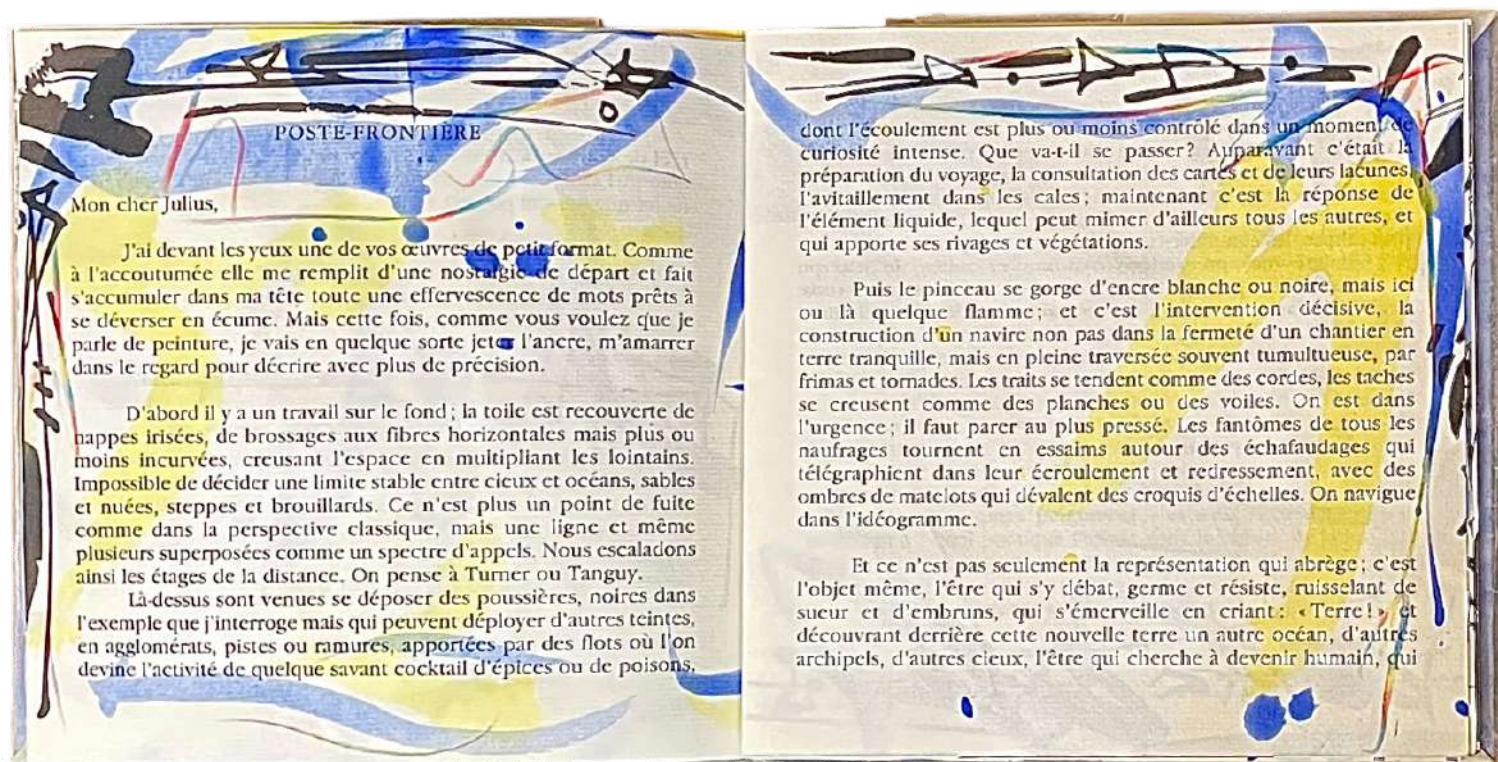 POSTE-FRONTIÈRE
Mon cher Julius,
J'ai devant les yeux une de vos œuvres de petit format. Comme
à l'accoutumée elle me remplit d'une nostalgie de départ et fait
s'accumuler dans ma tête toute une effervescence de mots prêts à
se déverser en écume. Mais cette fois, comme vous voulez que je
parle de peinture, je vais en quelque sorte jeter l'ancre, m'amarrer
dans le regard pour décrire avec plus de précision.
D'abord il y a un travail sur le fond ; la toile est recouverte de
nappes irisées, de brossages aux fibres horizontales mais plus ou
moins incurvées, creusant l'espace en multipliant les lointains.
Impossible de décider une limite stable entre cieux et océans, sables
et nuées, steppes et brouillards. Ce n'est plus un point de fuite
comme dans la perspective classique, mais une ligne et même
plusieurs superposées comme un spectre d'appels. Nous escaladons
ainsi les étages de la distance. On pense à Turner ou Tanguy.
Là-dessus sont venues se déposer des poussières, noires dans
l'exemple que j'interroge mais qui peuvent déployer d'autres teintes,
en agglomérats, pistes ou ramures, apportées par des flots où l'on
devine l'activité de quelque savant cocktail d'épices ou de poisons,
dont l'écoulement est plus ou moins contrôlé dans un moment de
curiosité intense. Que va-t-il se passer? Auparavant c'était la
préparation du voyage, la consultation des cartes et de leurs lacunes,
l'avitaillement dans les cales ; maintenant c'est la réponse de
l'élément liquide, lequel peut mimer d'ailleurs tous les autres, et
qui apporte ses rivages et végétations.
Puis le pinceau se gorge d'encre blanche ou noire, mais ici
ou là quelque flamme ; et c'est l'intervention décisive, la
construction d'un navire non pas dans la fermeté d'un chantier en
terre tranquille, mais en pleine traversée souvent tumultueuse, par
frimas et tornades. Les traits se tendent comme des cordes, les taches
se creusent comme des planches ou des voiles. On est dans
l'urgence ; il faut parer au plus pressé. Les fantômes de tous les
naufrages tournent en essaims autour des échafaudages qui
télégraphient dans leur écroulement et redressement, avec des
ombres de matelots qui dévalent des croquis d'échelles. On navigue
dans l'idéogramme.
Et ce n'est pas seulement la représentation qui abrège ; c'est
l'objet même, l'être qui s'y débat, germe et résiste, ruisselant de
sueur et d'embruns, qui s'émerveille en criant : «Terre!», et
découvrant derrière cette nouvelle terre un autre océan, d'autres
archipels, d'autres cieux, l'être qui cherche à devenir humain, qui